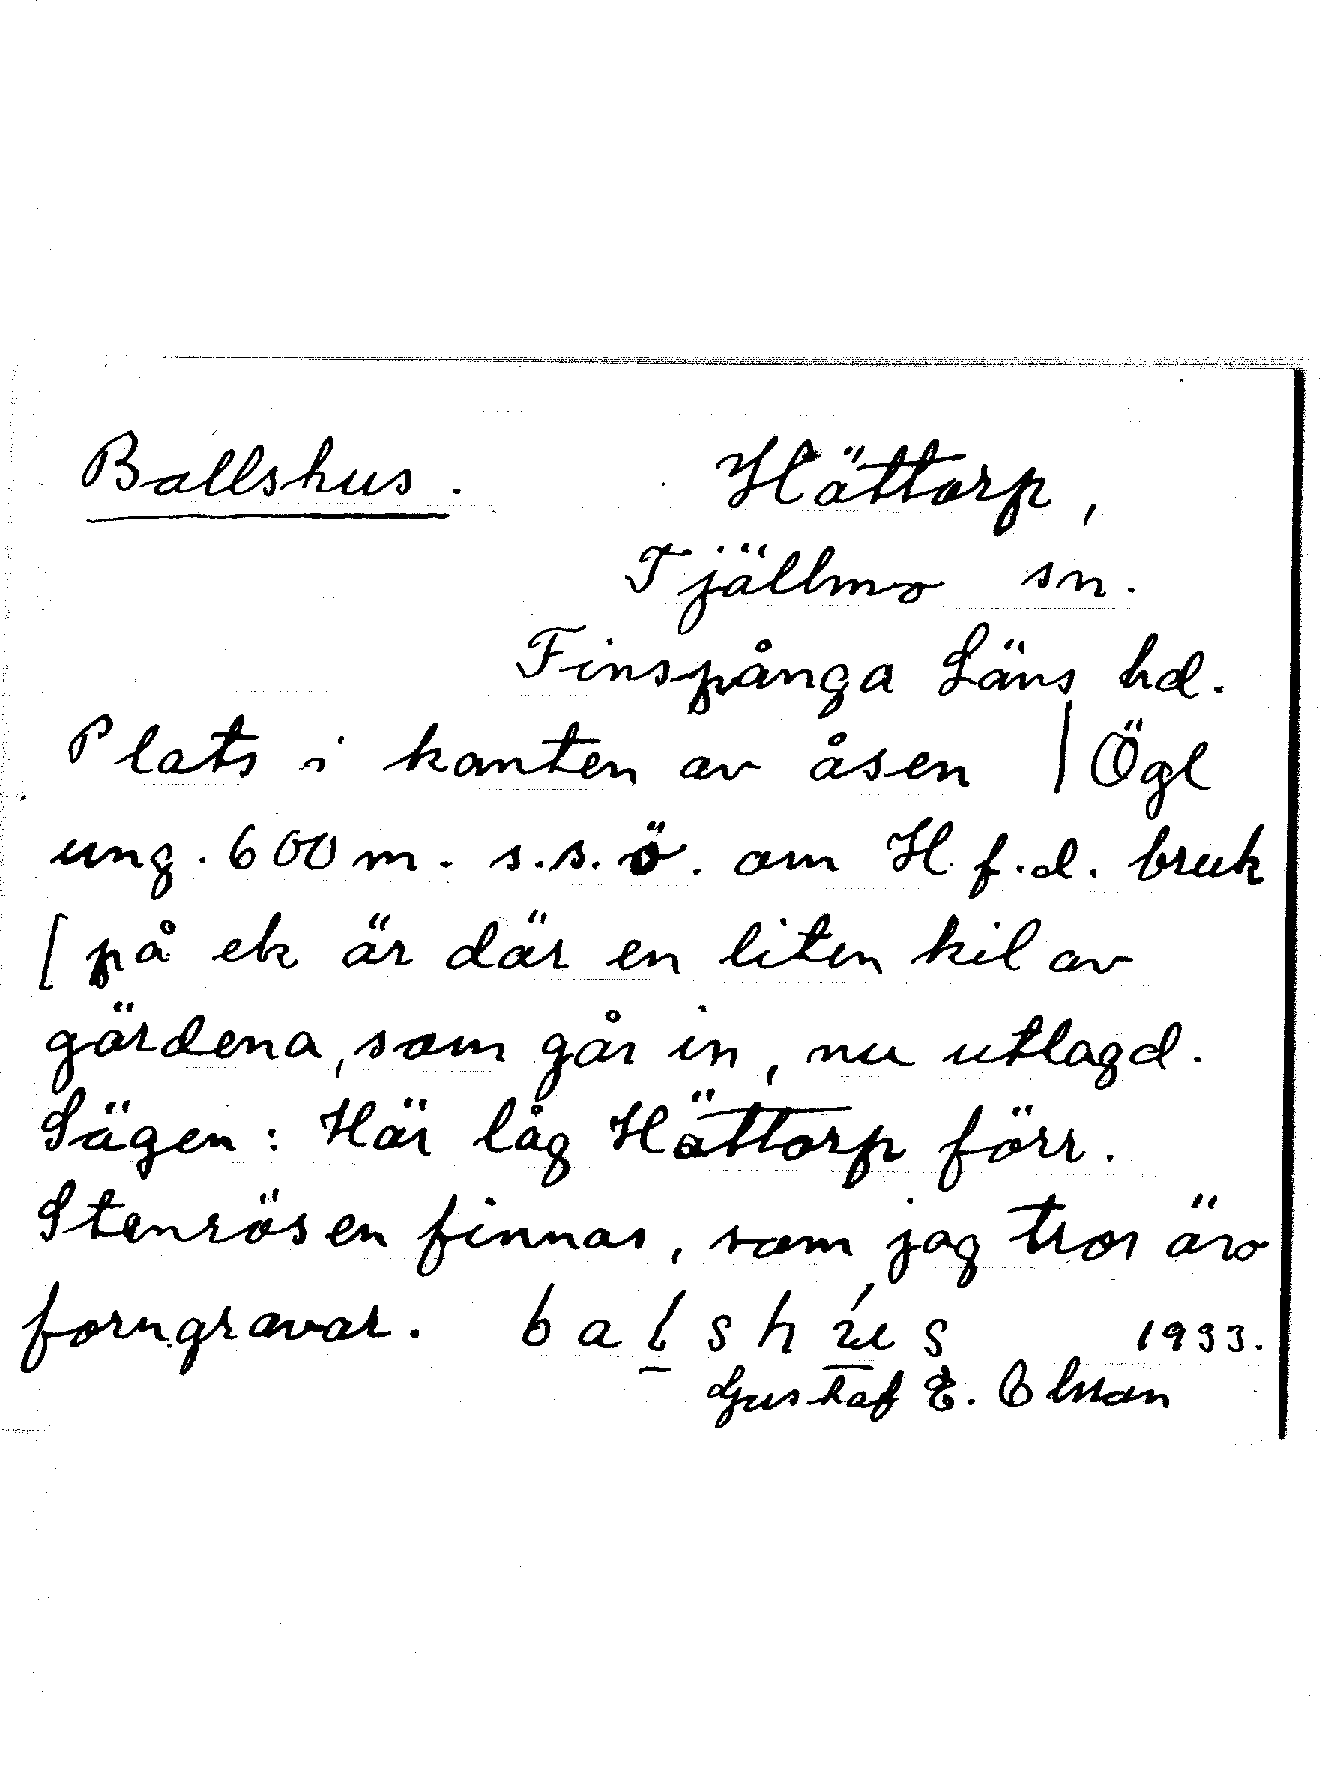 Ballshus. Hättorp,
Tjällmo sn.
Finspånga Läns hd.
Plats i kanten av åsen | Ögl
ung. 600 m. s.s.ö. om H. f.d. bruk
[ på ek är där en liten kil av
gärdena, som går in, nu utlagd.
Sägen: Här låg Hättorp förr.
Stenrösen finnas, som jag tror äro
forngravar. balshús 1933.
Gustaf E.